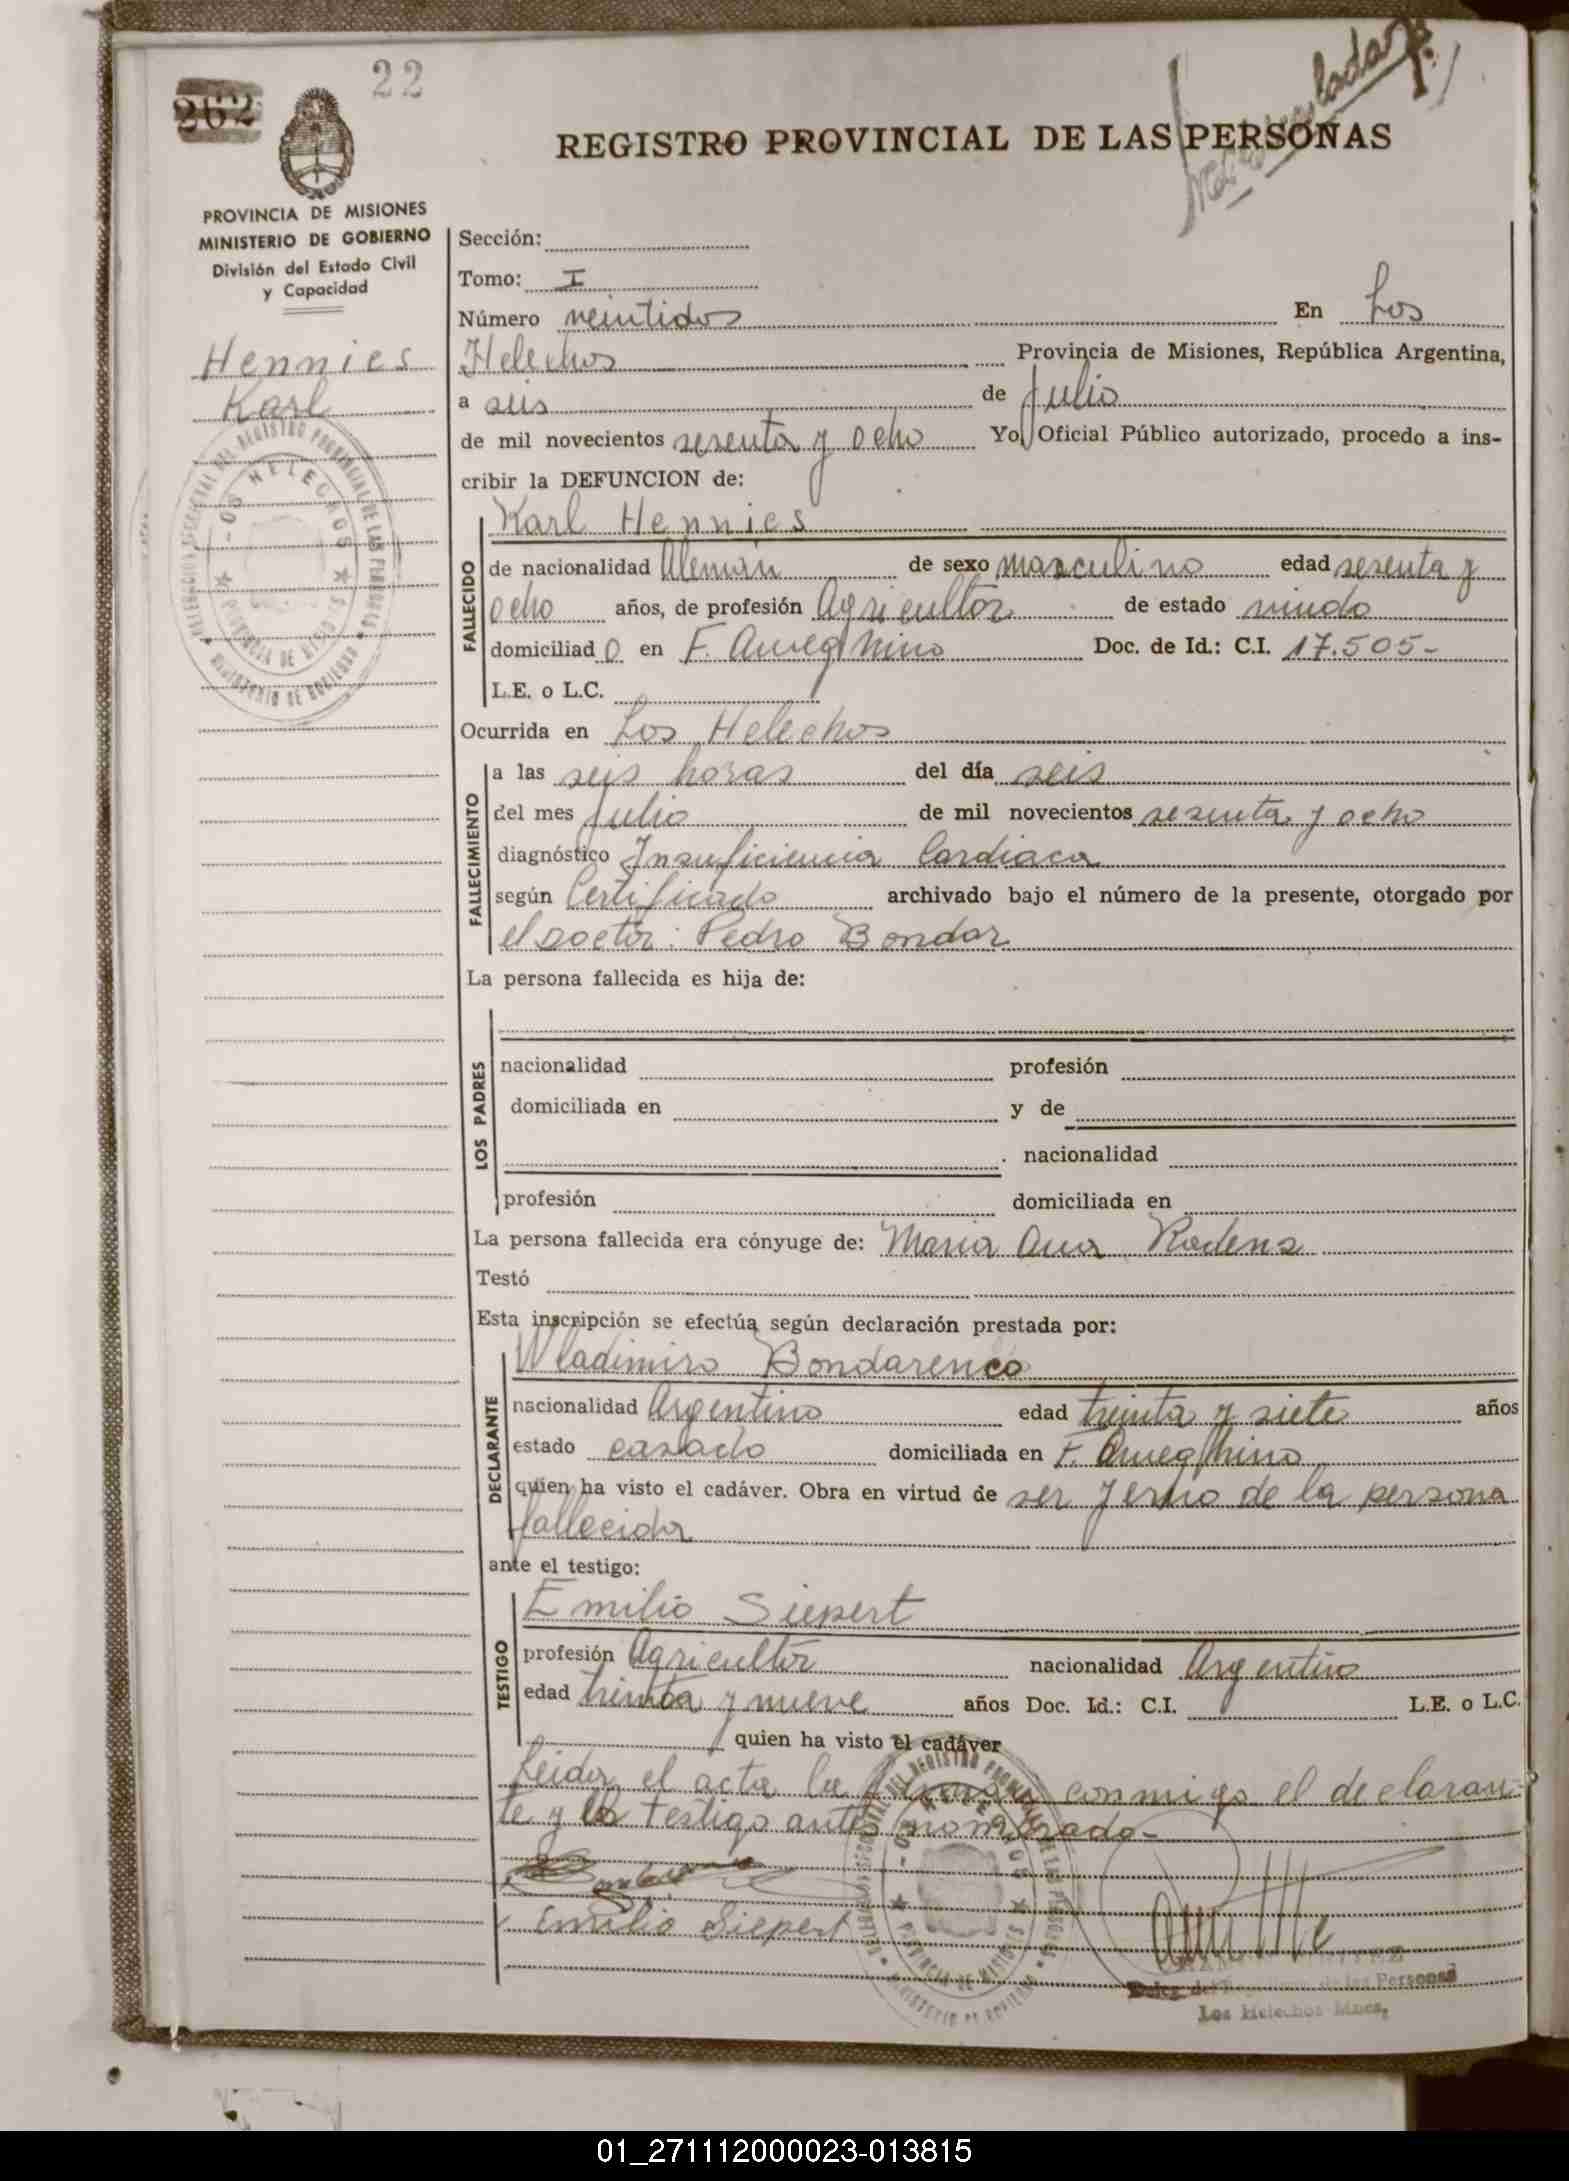 22
262
REGISTRO PROVINCIAL DE LAS PERSONAS
PROVINCIA DE MISIONES
MINISTERIO DE GOBIERNO
División del Estado Civil
y Capacidad
Hennies
Karl
Sección:
Tomo: I
Número veintidos En Los
Helechos Provincia de Misiones, República Argentina,
a seis de Julio
de mil novecientos sesenta y ocho Yo, Oficial Público autorizado, procedo a ins-
cribir la DEFUNCION de:
FALLECIDO
Karl Hennies
de nacionalidad Alemán de sexo masculino edad sesenta y
ocho años, de profesión Agricultor de estado viudo
domiciliad o en F. Ameghino Doc. de Id.: C.I. 17.505-
L.E. o L.C.
Ocurrida en Los Helechos
FALLECIMIENTO
a las seis horas del día seis
del mes Julio de mil novecientos sesenta y ocho
diagnóstico Insuficiencia Cardiaca
según Certificado archivado bajo el número de la presente, otorgado por
el Doctor: Pedro Bondar
La persona fallecida es hija de:
LOS PADRES
nacionalidad profesión
domiciliada en y de
nacionalidad
profesión domiciliada en
La persona fallecida era cónyuge de: Maria Ana Rodens
Testó
Esta inscripción se efectúa según declaración prestada por:
DECLARANTE
Wladimiro Bondarenco
nacionalidad Argentino edad treinta y siete años
estado casado domiciliada en F. Ameghino
quien ha visto el cadáver. Obra en virtud de ser yerno de la persona
fallecida
ante el testigo:
TESTIGO
Emilio Siepert
profesión Agricultor nacionalidad Argentino
edad treinta y nueve años Doc. Id.: C.I. L.E. o L.C.
quien ha visto el cadáver
Leida el acta la firman conmigo el declaran-
te y el testigo antes nombrado-
Emilio Siepert
de las Personas
Los Helechos Mnes.
01_271112000023-013815